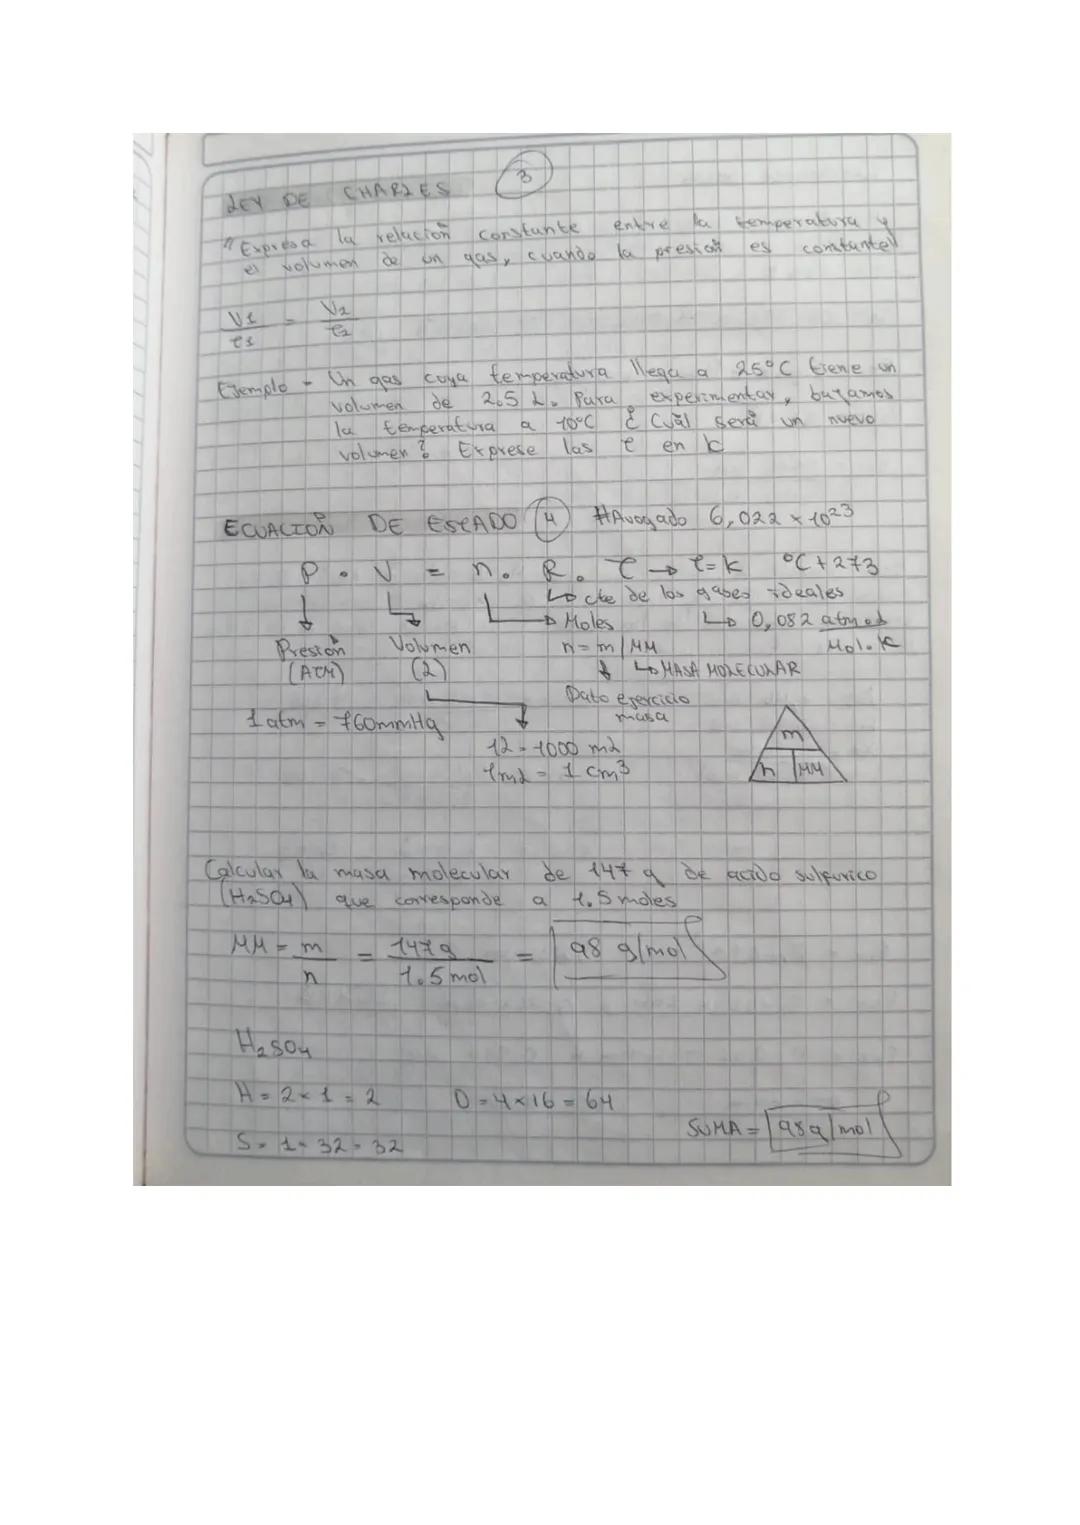 LEY DE CHARLES 3
"Expresa la relación constante entre la temperatura y
el volumen de un gas, cuando la presión es constante"
V1 = V2
t1 t2
Ejemplo - Un gas cuya temperatura llega a 25°C tiene un
volumen de 2.5 L. Para experimentar, bajamos
la temperatura a 10°C ¿Cuál será un nuevo
volumen? Exprese las t en K
ECUACIÓN DE ESTADO 4 #Avogado 6,022 x 10²³
P . V = n . R . T → t=K °C+273
↳ cte de los gases ideales
↳ Moles ↳ 0,082 atm.L
Presión Volumen n = m/MM Mol.K
(ATM) (L) ↳ MASA MOLECULAR
Dato ejercicio
1 atm = 760mmHg masa
m
1L = 1000 mL
n MM
1mL = 1 cm³
Calcular la masa molecular de 147 g de acido sulfurico
(H₂SO₄) que corresponde a 1.5 moles
MM = m = 147g = 98 g/mol
n 1.5 mol
H₂SO₄
H = 2 x 1 = 2 O = 4 x 16 = 64
SUMA = 98g/mol
S = 1 x 32 = 32